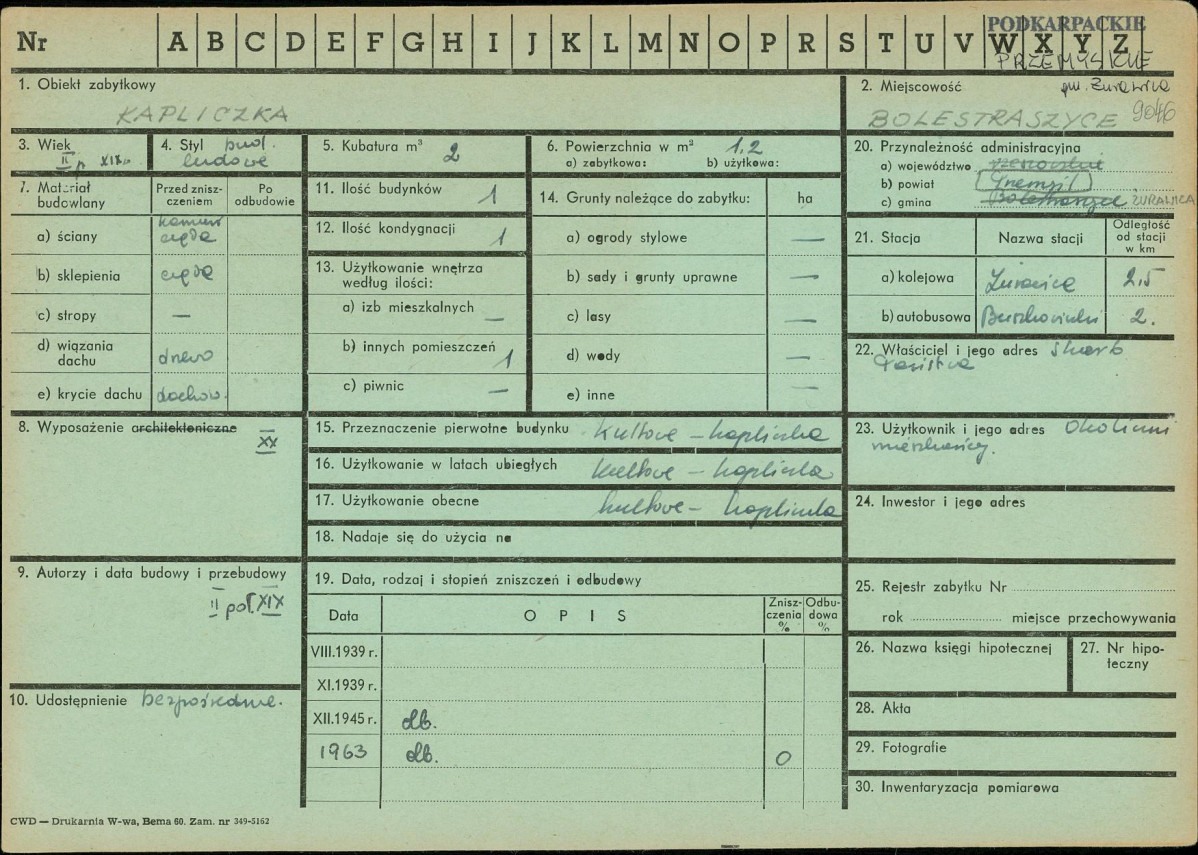 PODKARPACKIE
Nr A B C D E F G H I J K L M N O P R S T U V W X Y Z
PRZEMYSKIE
1. Obiekt zabytkowy
KAPLICZKA
2. Miejscowość
gm. Żurawica
BOLESTRASZYCE 9046
3. Wiek
II p XIX
4. Styl bud.
ludowe
5. Kubatura m³ 2
6. Powierzchnia w m² 1,2
a) zabytkowa: b) użytkowa:
20. Przynależność administracyjna
a) województwo rzeszowskie
b) powiat Przemyśl
c) gmina Bolestraszyce ŻURAWICA
7. Materiał budowlany
Przed zniszczeniem
Po odbudowie
a) ściany kamień cegła
b) sklepienia cegła
c) stropy —
d) wiązania dachu drewo
e) krycie dachu dachów.
11. Ilość budynków 1
12. Ilość kondygnacji 1
13. Użytkowanie wnętrza według ilości:
a) izb mieszkalnych —
b) innych pomieszczeń 1
c) piwnic —
14. Grunty należące do zabytku: ha
a) ogrody stylowe —
b) sady i grunty uprawne —
c) lasy —
d) wody —
e) inne —
21. Stacja
Nazwa stacji
Odległość od stacji w km
a) kolejowa Żurawica 2,5
b) autobusowa 2.
22. Właściciel i jego adres Skarb
Państwa
8. Wyposażenie architektoniczne
XX
15. Przeznaczenie pierwotne budynku kultowe – kapliczka
16. Użytkowanie w latach ubiegłych kultowe – kapliczka
17. Użytkowanie obecne kultowe – kapliczka
18. Nadaje się do użycia na
23. Użytkownik i jego adres okoliczni
mieszkańcy.
24. Inwestor i jego adres
9. Autorzy i data budowy i przebudowy
II poł. XIX
19. Data, rodzaj i stopień zniszczeń i odbudowy
Data
O P I S
Zniszczenia %
Odbudowa %
VIII.1939 r.
XI.1939 r.
XII.1945 r. db.
1963 db. 0
25. Rejestr zabytku Nr
rok miejsce przechowywania
26. Nazwa księgi hipotecznej
27. Nr hipoteczny
10. Udostępnienie bezpośrednie.
28. Akta
29. Fotografie
30. Inwentaryzacja pomiarowa
CWD — Drukarnia W-wa, Bema 60. Zam. nr 349-5162